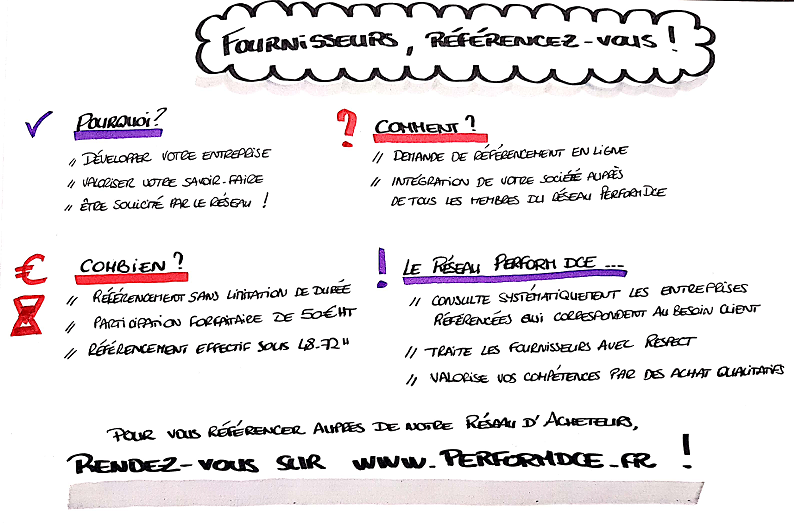 FOURNISSEURS, RÉFÉRENCEZ-VOUS !
✓ POURQUOI ?
// DÉVELOPPER VOTRE ENTREPRISE
// VALORISER VOTRE SAVOIR-FAIRE
// ÊTRE SOLLICITÉ PAR LE RÉSEAU !
? COMMENT ?
// DEMANDE DE RÉFÉRENCEMENT EN LIGNE
// INTÉGRATION DE VOTRE SOCIÉTÉ AUPRÈS
DE TOUS LES MEMBRES DU RÉSEAU PERFORMDCE
€ COMBIEN ?
// RÉFÉRENCEMENT SANS LIMITATION DE DURÉE
// PARTICIPATION FORFAITAIRE DE 50€HT
// RÉFÉRENCEMENT EFFECTIF SOUS 48-72H
! LE RÉSEAU PERFORM DCE ...
// CONSULTE SYSTÉMATIQUEMENT LES ENTREPRISES
RÉFÉRENCÉES QUI CORRESPONDENT AU BESOIN CLIENT
// TRAITE LES FOURNISSEURS AVEC RESPECT
// VALORISE VOS COMPÉTENCES PAR DES ACHAT QUALITATIFS
POUR VOUS RÉFÉRENCER AUPRÈS DE NOTRE RÉSEAU D'ACHETEURS,
RENDEZ-VOUS SUR WWW.PERFORMDCE.FR !